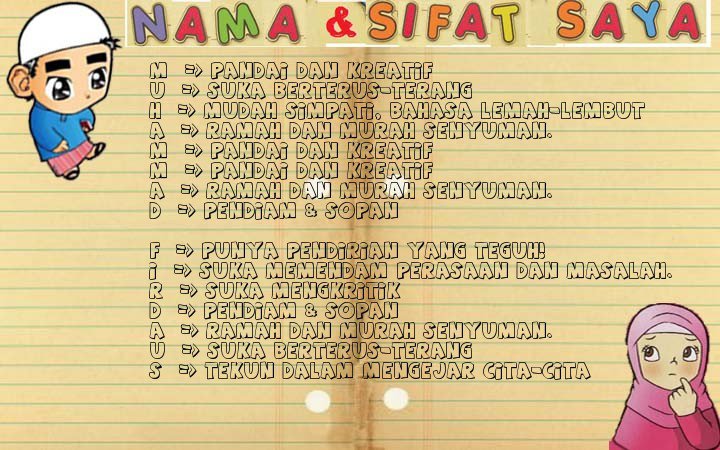 NAMA & SIFAT SAYA
M => PANDAI DAN KREATIF
U => SUKA BERTERUS-TERANG
H => MUDAH SIMPATI, BAHASA LEMAH-LEMBUT
A => RAMAH DAN MURAH SENYUMAN.
M => PANDAI DAN KREATIF
M => PANDAI DAN KREATIF
A => RAMAH DAN MURAH SENYUMAN.
D => PENDIAM & SOPAN
F => PUNYA PENDIRIAN YANG TEGUH!
I => SUKA MEMENDAM PERASAAN DAN MASALAH.
R => SUKA MENGKRITIK
D => PENDIAM & SOPAN
A => RAMAH DAN MURAH SENYUMAN.
U => SUKA BERTERUS-TERANG
S => TEKUN DALAM MENGEJAR CITA-CITA